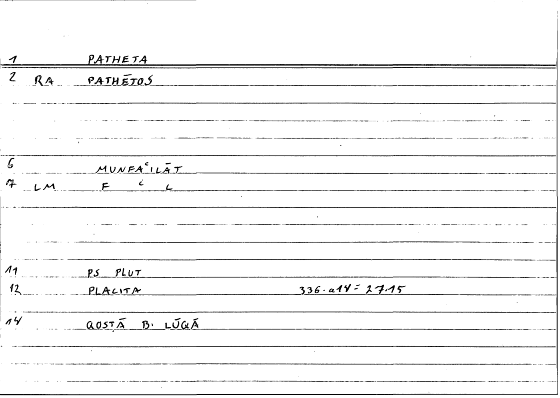 1 PATHETA
2 RA PATHĒTOS
6 MUNFAʿILĀT
7 LM F ʿ L
11 PS PLUT
12 PLACITA 336.a14 = 27.15
14 QOSTĀ B. LŪQĀ